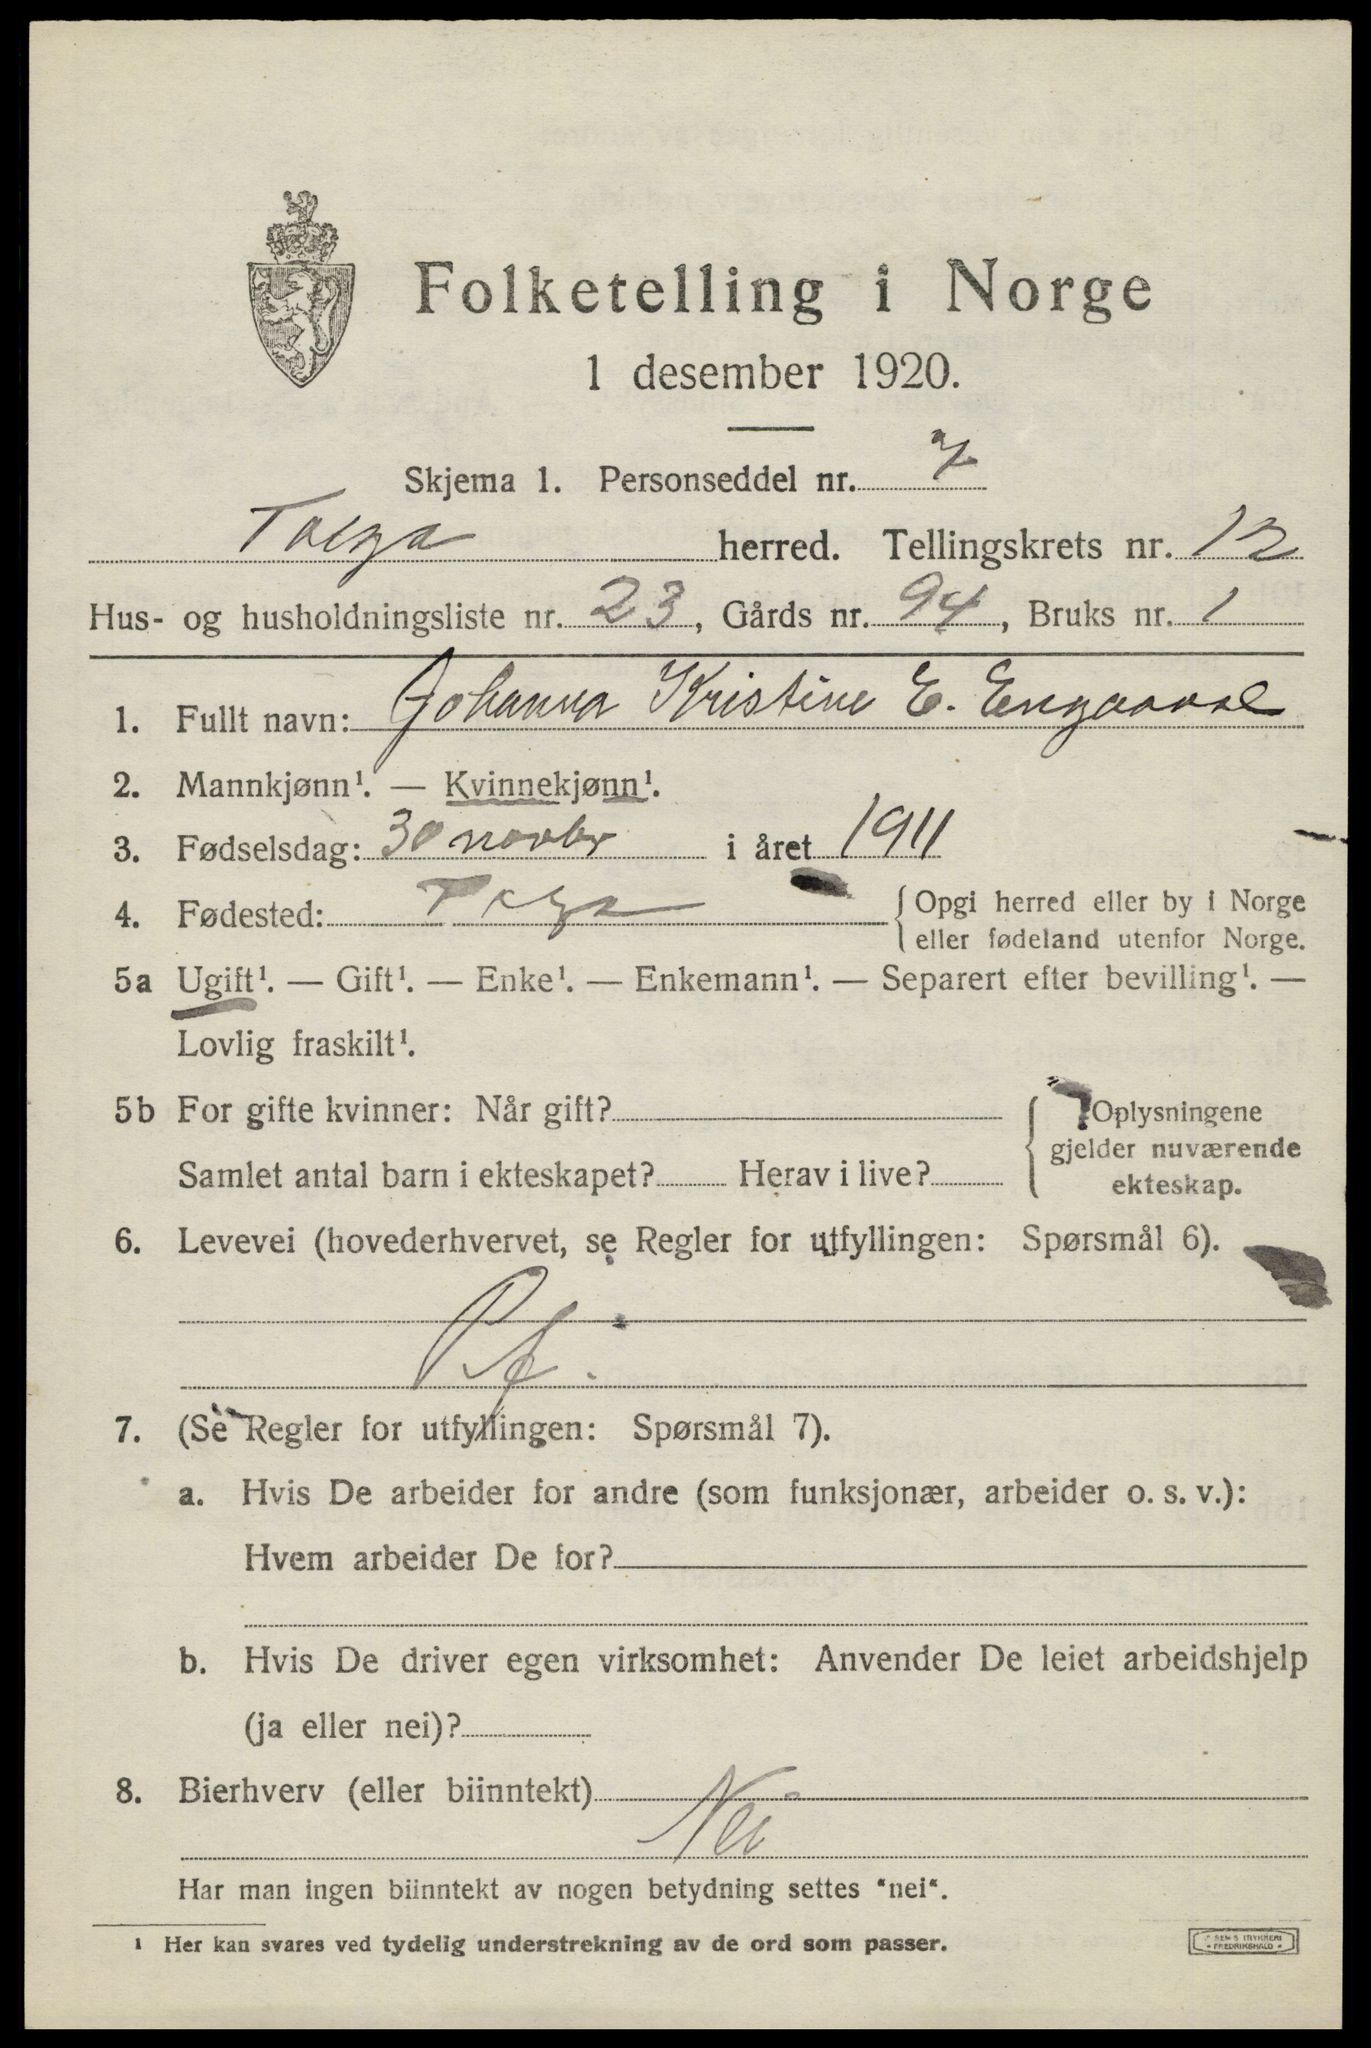 Folketelling i Norge
1 desember 1920.
Skjema 1. Personseddel nr. 7
Tolga herred. Tellingskrets nr. 12
Hus- og husholdningsliste nr. 23, Gårds nr. 94, Bruks nr. 1
1. Fullt navn: Johanna Kristine E. Engaavoe
2. Mannkjønn¹. — Kvinnekjønn¹.
3. Fødselsdag: 30 novbr i året 1911
4. Fødested: Tolga {Opgi herred eller by i Norge
eller fødeland utenfor Norge.
5a Ugift¹. — Gift¹. — Enke¹. — Enkemann¹. — Separert efter bevilling¹. —
Lovlig fraskilt¹.
5b For gifte kvinner: Når gift? {Oplysningene
gjelder nuværende
Samlet antal barn i ekteskapet? Herav i live? ekteskap.
6. Levevei (hovederhvervet, se Regler for utfyllingen: Spørsmål 6).
Pf.
7. (Se Regler for utfyllingen: Spørsmål 7).
a. Hvis De arbeider for andre (som funksjonær, arbeider o. s. v.):
Hvem arbeider De for?
b. Hvis De driver egen virksomhet: Anvender De leiet arbeidshjelp
(ja eller nei)?
8. Bierhverv (eller biinntekt)
Nei
Har man ingen biinntekt av nogen betydning settes "nei".
¹ Her kan svares ved tydelig understrekning av de ord som passer.
FREDRIKSHALD